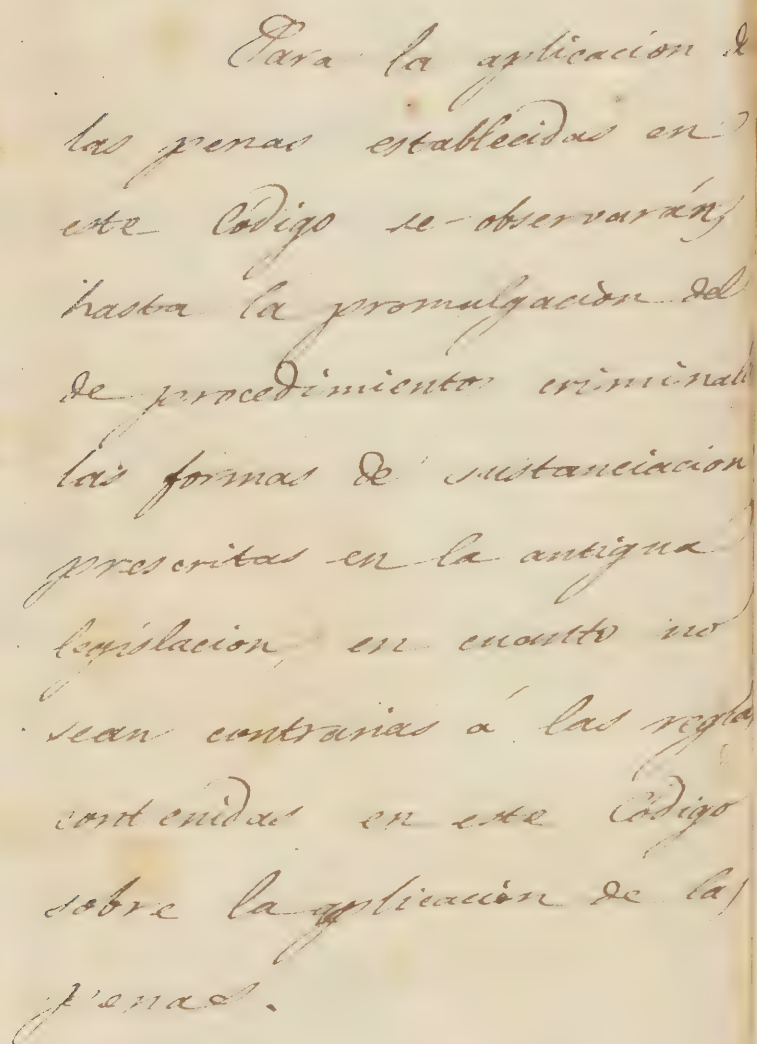 Para la aplicacion de
las penas establecidas en
este Código se observarán,
hasta la promulgacion del
de procedimiento criminal
las formas de sustanciacion
prescritas en la antigua
legislacion, en cuanto no
sean contrarias á las reglas
contenidas en este Código
sobre la aplicacion de las
penas.